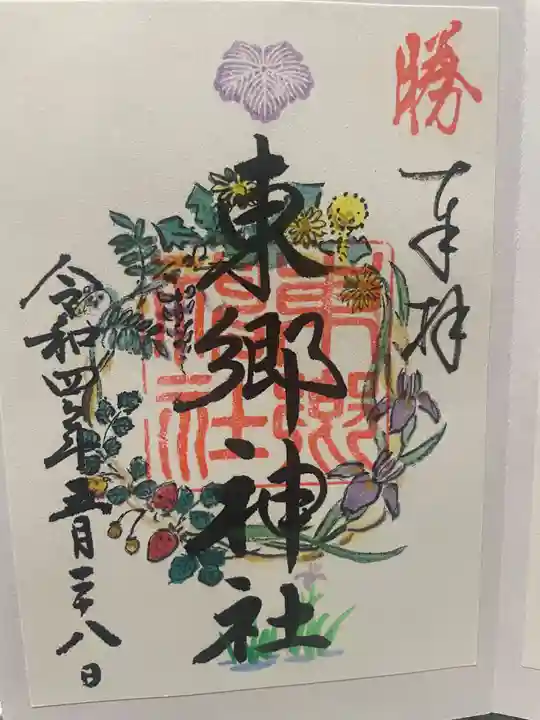 勝
奉拝
東郷神社
東郷神社
令和四年五月二十八日